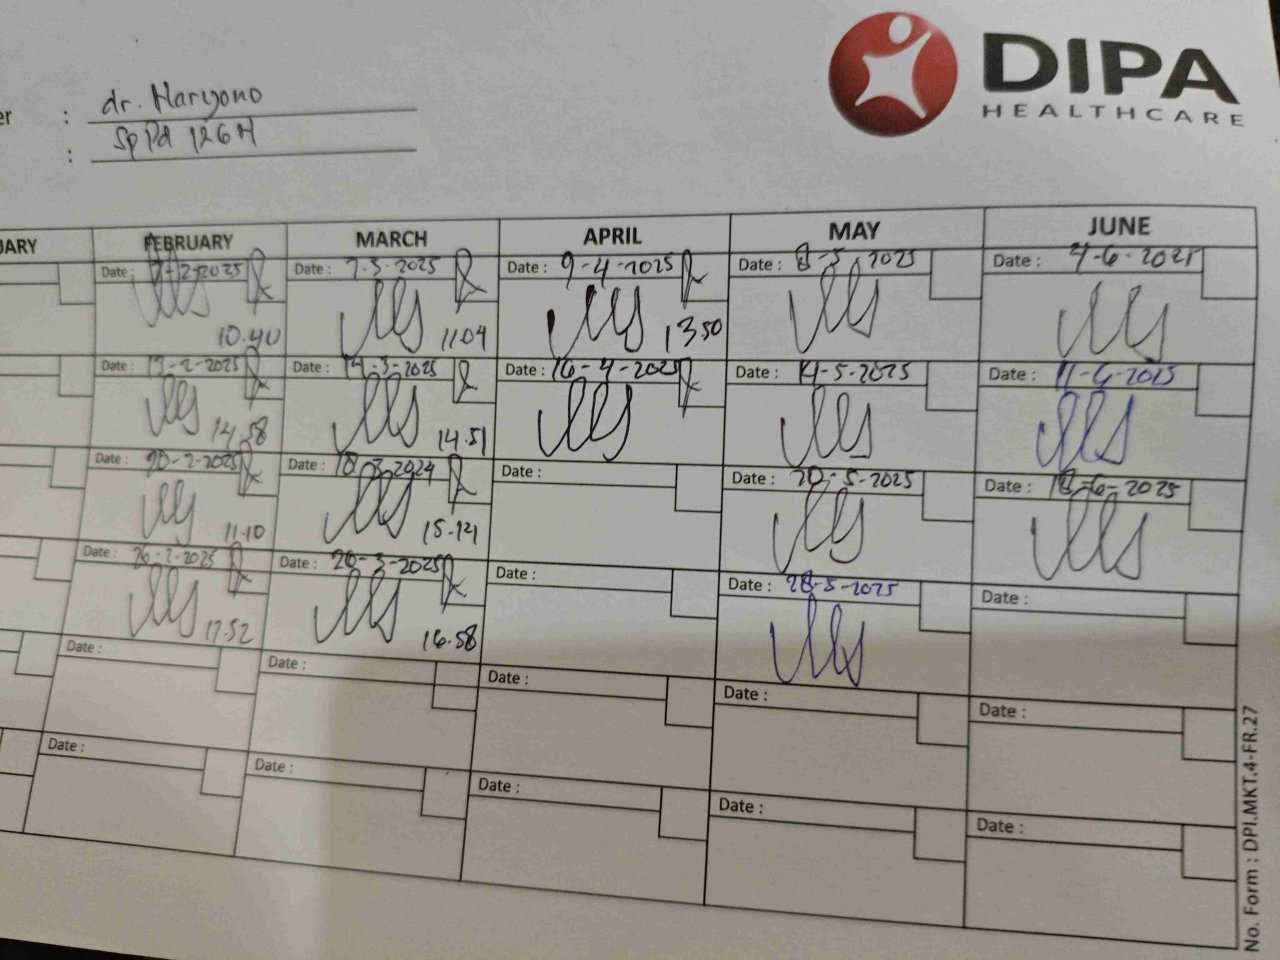 DIPA
HEALTHCARE
er : dr. Haryono
: SpPd
UARY FEBRUARY MARCH APRIL MAY JUNE
Date : 7-2-2025 Date : 7-3-2025 Date : 9-4-2025 Date : 8-5-2025 Date : 4-6-2025
10.40 11.04 13.50
Date : 13-2-2025 Date : 14-3-2025 Date : 16-4-2025 Date : 14-5-2025 Date : 11-6-2025
14.58 14.51
Date : 20-2-2025 Date : 18-3-2024 Date : Date : 20-5-2025 Date : 18-6-2025
11.10 15.121
Date : 26-2-2025 Date : 26-3-2025 Date : Date : 28-5-2025 Date :
17.52 16.58
Date : Date : Date : Date : Date :
Date : Date : Date : Date : Date :
No. Form : DPI.MKT.4-FR.27